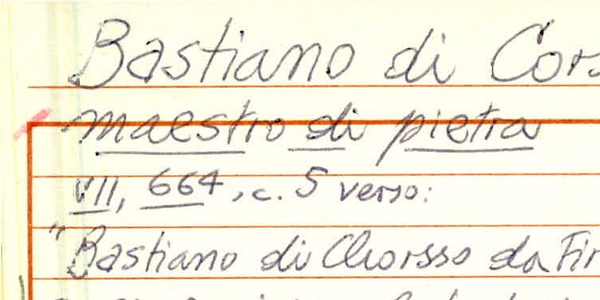 Bastiano di Cors
maestro di pietra
VII, 664, c. 5 verso:
"Bastiano di Chorsso da Fir